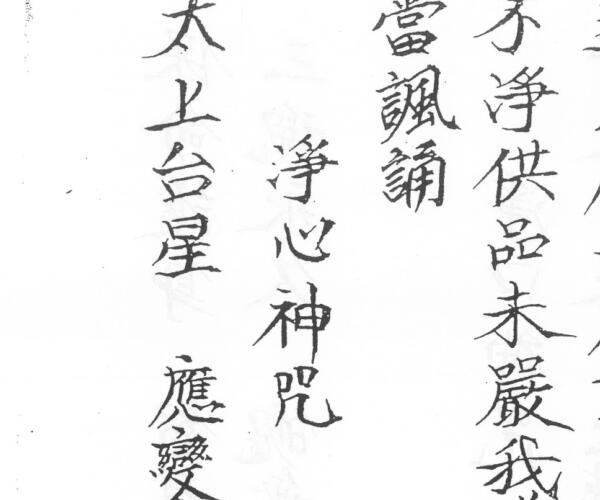 不淨供品未嚴我
當諷誦
淨心神咒
太上台星 應變